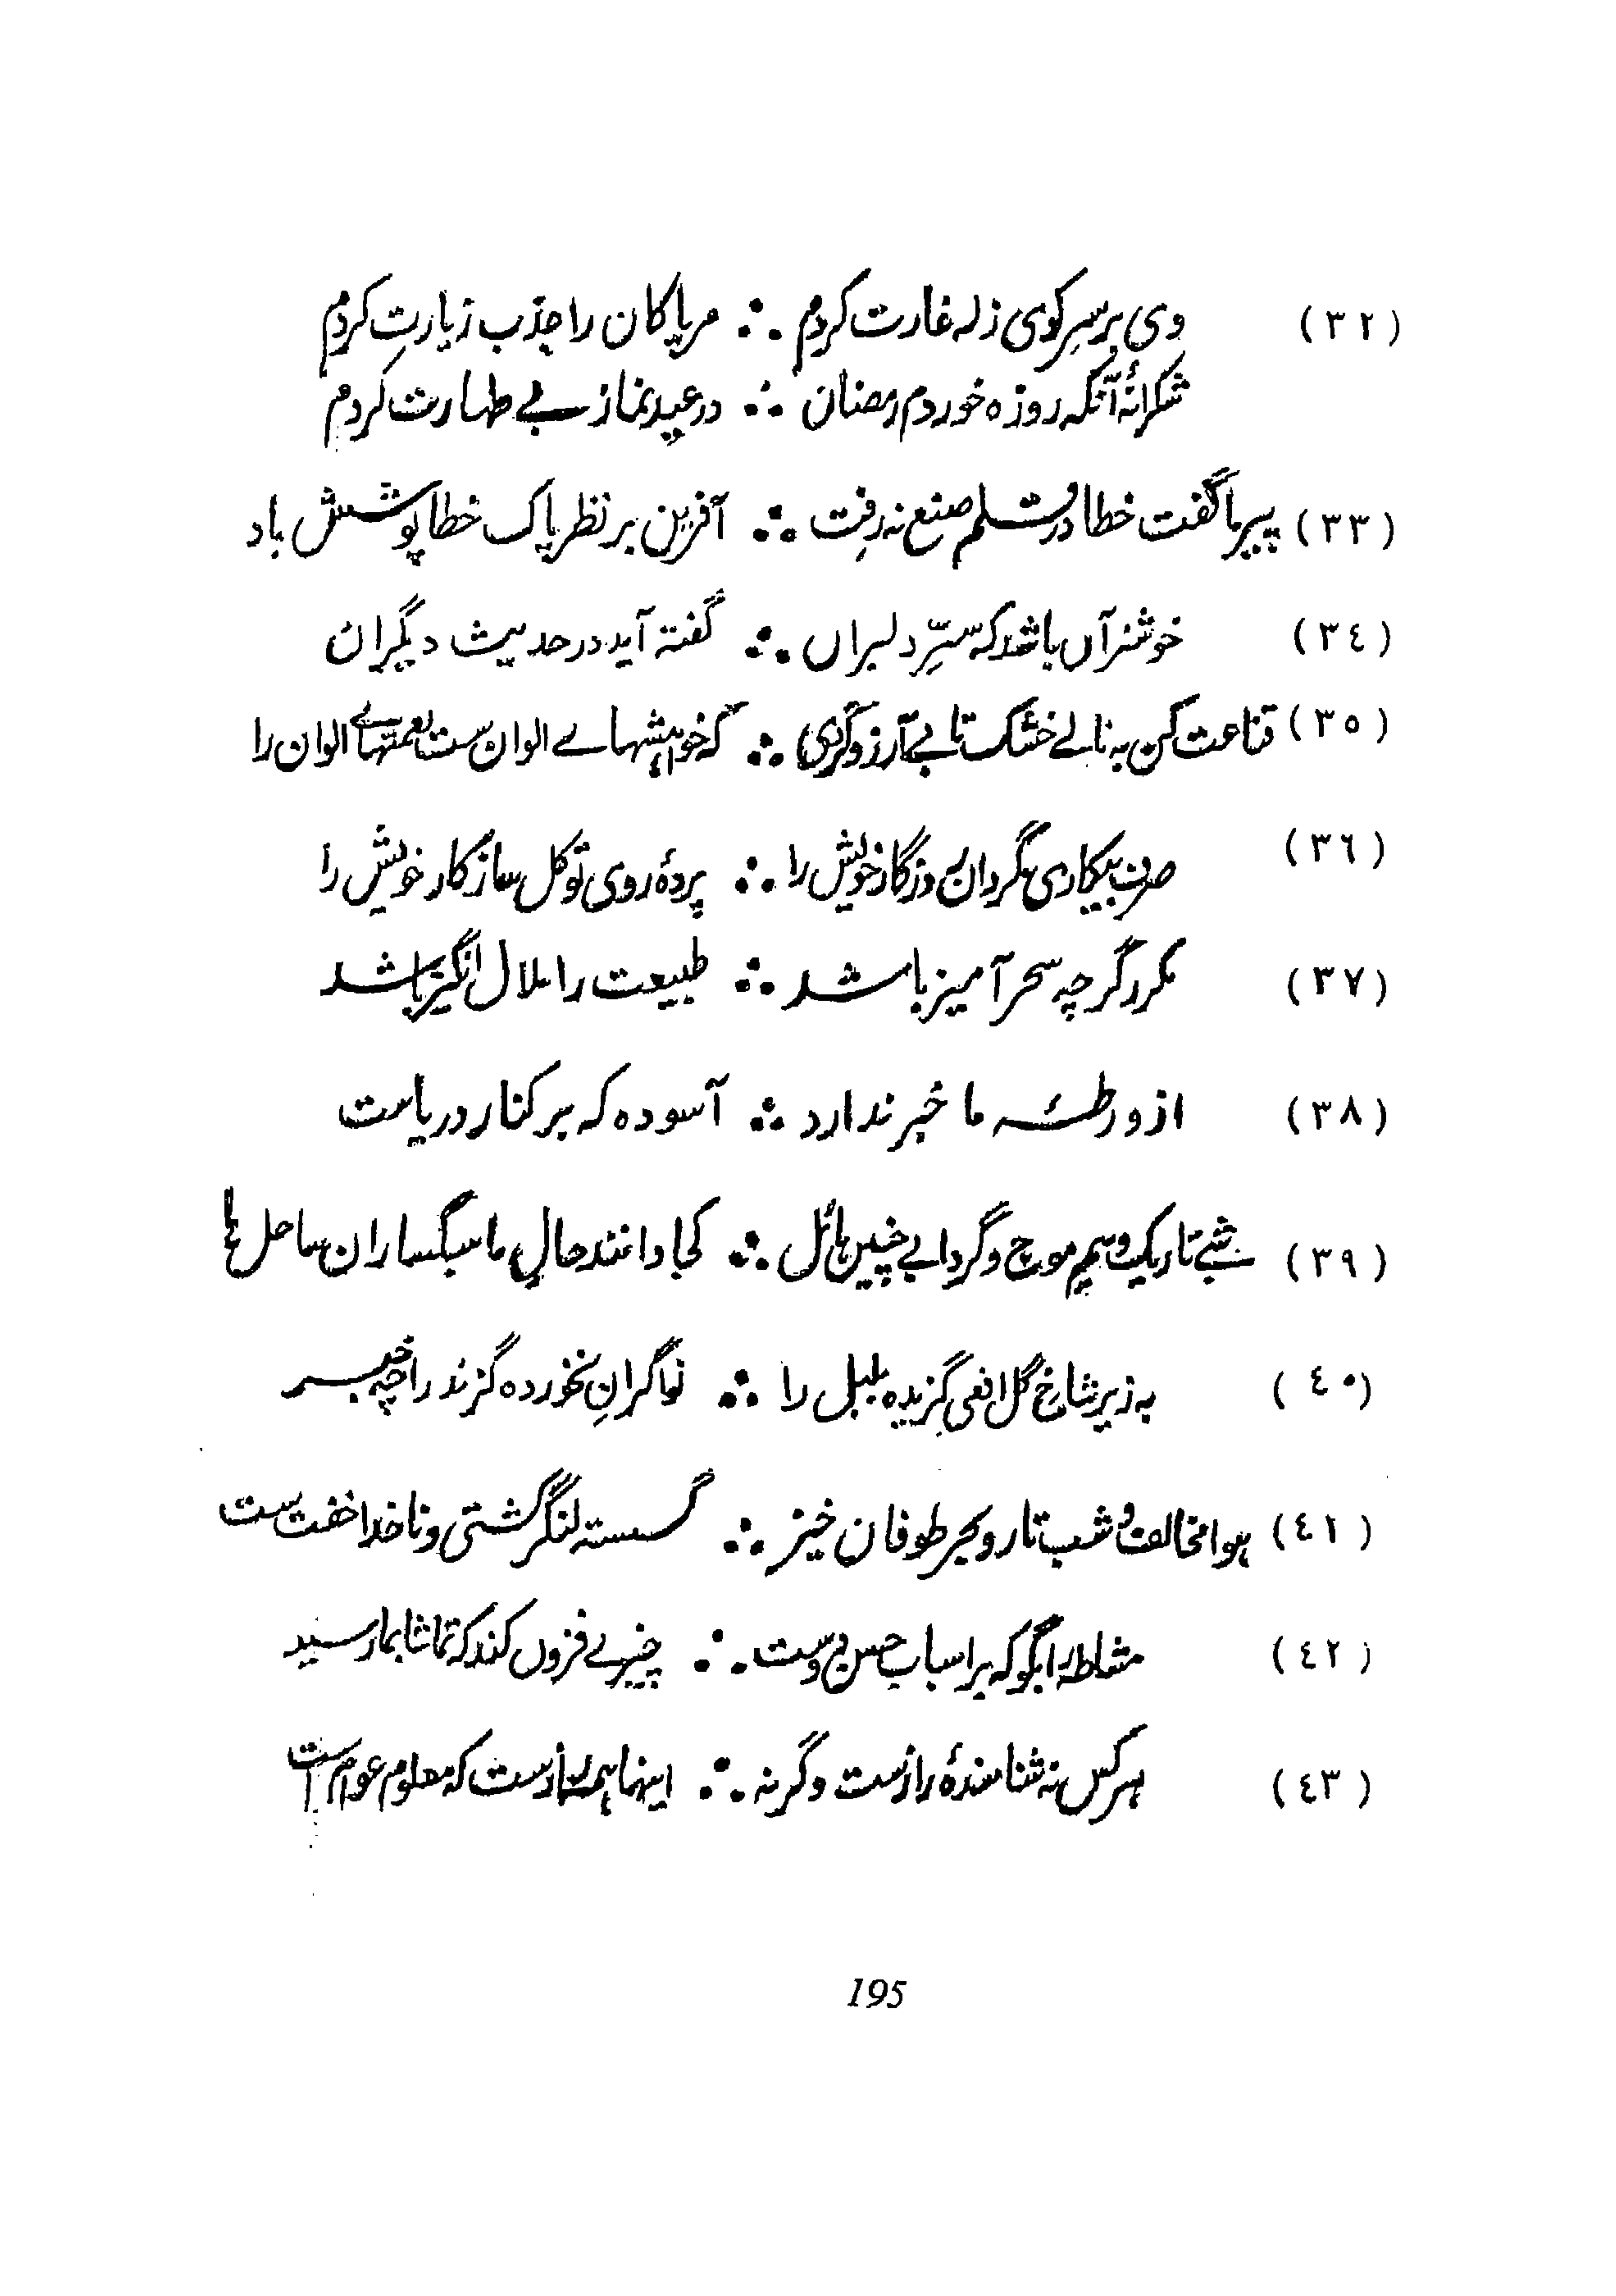 (۳۲) وی بر سرِ کوی زله غارت کردم ∴ مر پاکان را جذب زیارتِ کردم
شکرانۂ آنکه روزه خوردم رمضان ∴ در عید نماز بے طہارت کردم
(۳۳) پیر ما گفت خطا در قلم صنع نہ رفت ∴ آفرین بر نظر پاک خطا پوشش باد
(۳٤) خوشتر آں باشد کہ سرِّ دلبراں ∴ گفتہ آید در حدیث دیگران
(۳٥) قناعت کن بہ نانے خشک تا بے آرزو گردی ∴ کہ خواہشہاے الوان ست نعمتہاے الوان را
(۳٦) صرف بیکاری مگردان روزگار خویش را ∴ پردۂ روی توکل ساز کار خویش را
(۳۷) مکرر گرچہ سحر آمیز باشد ∴ طبیعت را ملال انگیز باشد
(۳۸) از ورطۂ ما خبر ندارد ∴ آسودہ کہ بر کنار دریاست
(۳۹) شبے تاریک و بیم موج و گردابے چنیں ہائل ∴ کجا دانند حالِ ما سبکساران ساحل ہا
(٤۰) بہ زیر شاخ گل افعی گزیدہ بلبل را ∴ نواگرانِ نخوردہ گزند را چہ خبر
(٤۱) ہوا مخالف و شب تار و بحر طوفان خیز ∴ گسستہ لنگر کشتی و ناخدا خفت ست
(٤۲) مشاطہ را بگو کہ بر اسباب حسن دوست ∴ چیزے فزوں کند کہ تماشا بما رسید
(٤۳) ہر کس نہ شناسندۂ راز ست وگرنہ ∴ اینہا ہمہ راز ست کہ معلوم عوام است
195